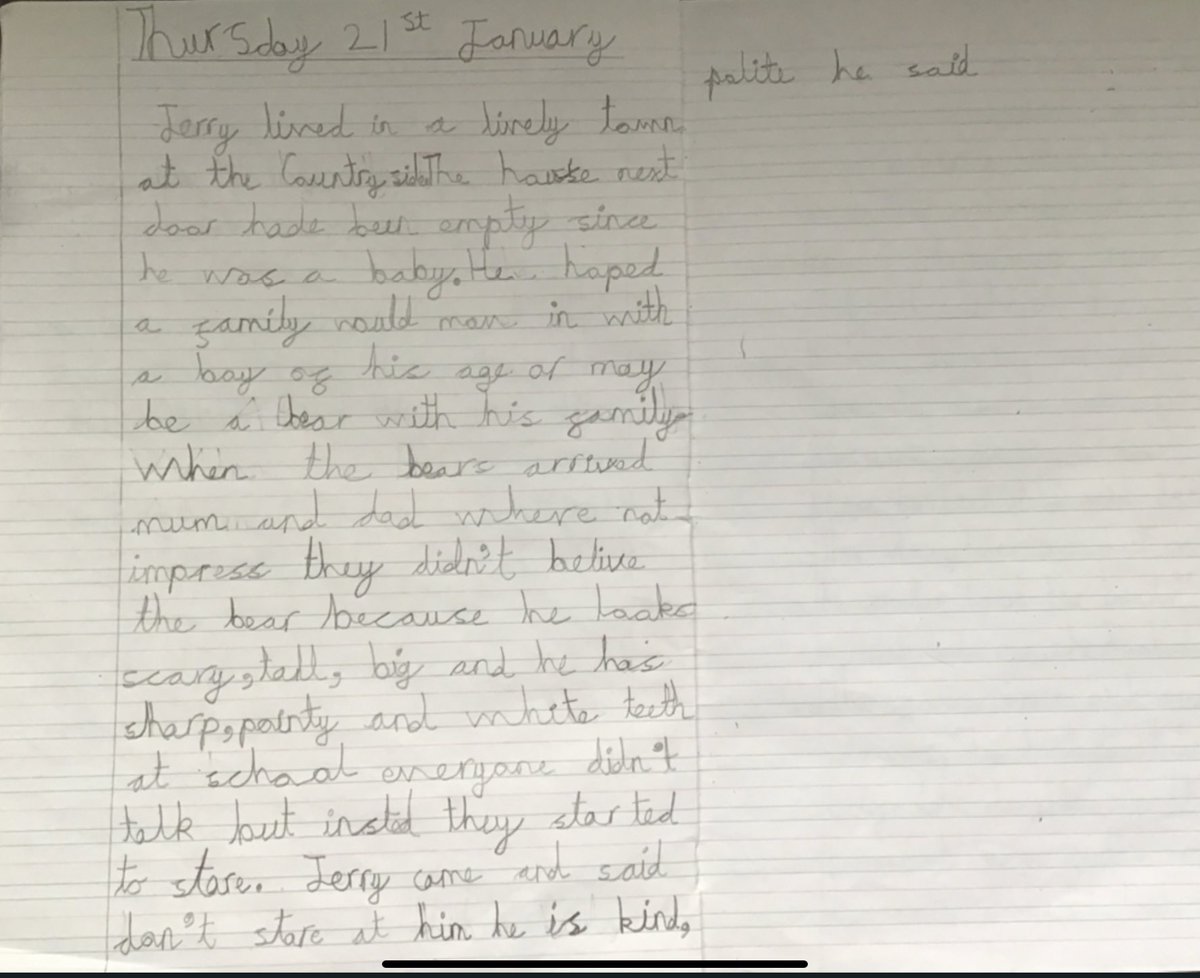 Thursday 21st January
Jerry lived in a lively town
at the Countryside The house next
door hade been empty since
he was a baby. He hoped
a family would move in with
a boy of his age or may
be a bear with his family
When the bears arrived
mum and dad where not
impress they didn't belive
the bear because he looks
scary, tall, big and he has
sharp, pointy and white teeth
at school everyone didn't
talk but insted they started
to stare. Jerry came and said
don't stare at him he is kind,
polite he said